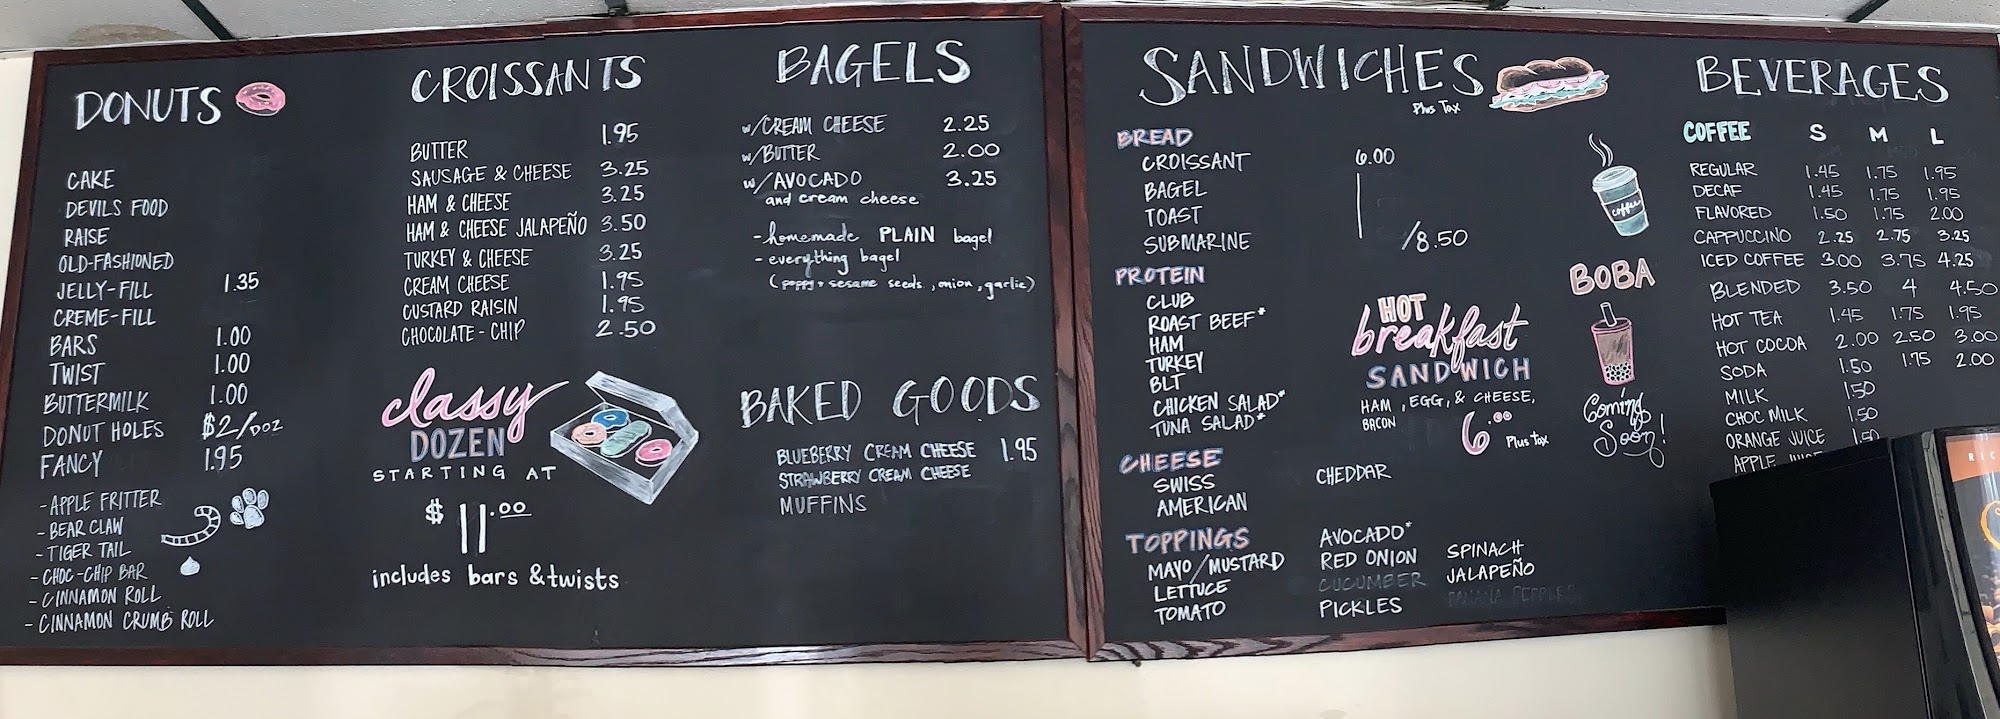 DONUTS
CAKE
DEVILS FOOD
RAISE
OLD-FASHIONED
JELLY-FILL 1.35
CREME-FILL
BARS 1.00
TWIST 1.00
BUTTERMILK 1.00
DONUT HOLES $2/DOZ
FANCY 1.95
- APPLE FRITTER
- BEAR CLAW
- TIGER TAIL
- CHOC-CHIP BAR
- CINNAMON ROLL
- CINNAMON CRUMB ROLL
CROISSANTS
BUTTER 1.95
SAUSAGE & CHEESE 3.25
HAM & CHEESE 3.25
HAM & CHEESE JALAPEÑO 3.50
TURKEY & CHEESE 3.25
CREAM CHEESE 1.95
CUSTARD RAISIN 1.95
CHOCOLATE-CHIP 2.50
classy
DOZEN
STARTING AT
$11.00
includes bars & twists
BAGELS
w/CREAM CHEESE 2.25
w/BUTTER 2.00
w/AVOCADO 3.25
and cream cheese
- homemade PLAIN bagel
- everything bagel
(poppy + sesame seeds, onion, garlic)
BAKED GOODS
BLUEBERRY CREAM CHEESE 1.95
STRAWBERRY CREAM CHEESE
MUFFINS
SANDWICHES
Plus Tax
BREAD
CROISSANT 6.00
BAGEL
TOAST
SUBMARINE /8.50
PROTEIN
CLUB
ROAST BEEF*
HAM
TURKEY
BLT
CHICKEN SALAD*
TUNA SALAD*
CHEESE
SWISS CHEDDAR
AMERICAN
TOPPINGS
MAYO/MUSTARD
LETTUCE
TOMATO
AVOCADO*
RED ONION
CUCUMBER
PICKLES
SPINACH
JALAPEÑO
HOT
breakfast
SANDWICH
HAM, EGG, & CHEESE,
BACON
6.00 Plus tax
coffee
BOBA
Coming
Soon!
BEVERAGES
COFFEE S M L
REGULAR 1.45 1.75 1.95
DECAF 1.45 1.75 1.95
FLAVORED 1.50 1.75 2.00
CAPPUCCINO 2.25 2.75 3.25
ICED COFFEE 3.00 3.75 4.25
BLENDED 3.50 4 4.50
HOT TEA 1.45 1.75 1.95
HOT COCOA 2.00 2.50 3.00
SODA 1.50 1.75 2.00
MILK 1.50
CHOC MILK 1.50
ORANGE JUICE 1.50
APPLE